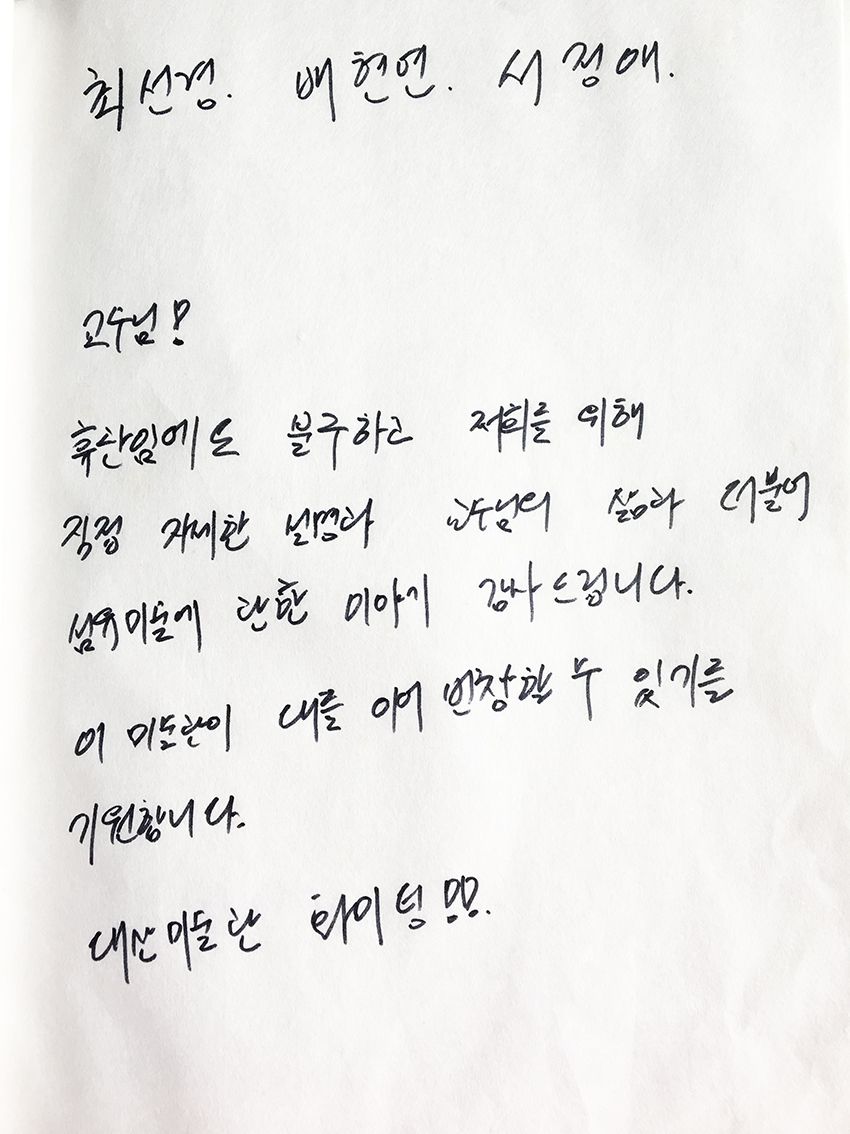 최선경. 배현연. 서정애.
교수님!
휴관임에도 불구하고 저희를 위해
직접 자세한 설명과 교수님의 삶과 더불어
섬유미술에 관한 이야기 감사드립니다.
이 미술관이 대를 이어 번창할 수 있기를
기원합니다.
대산미술관 화이팅!!!.